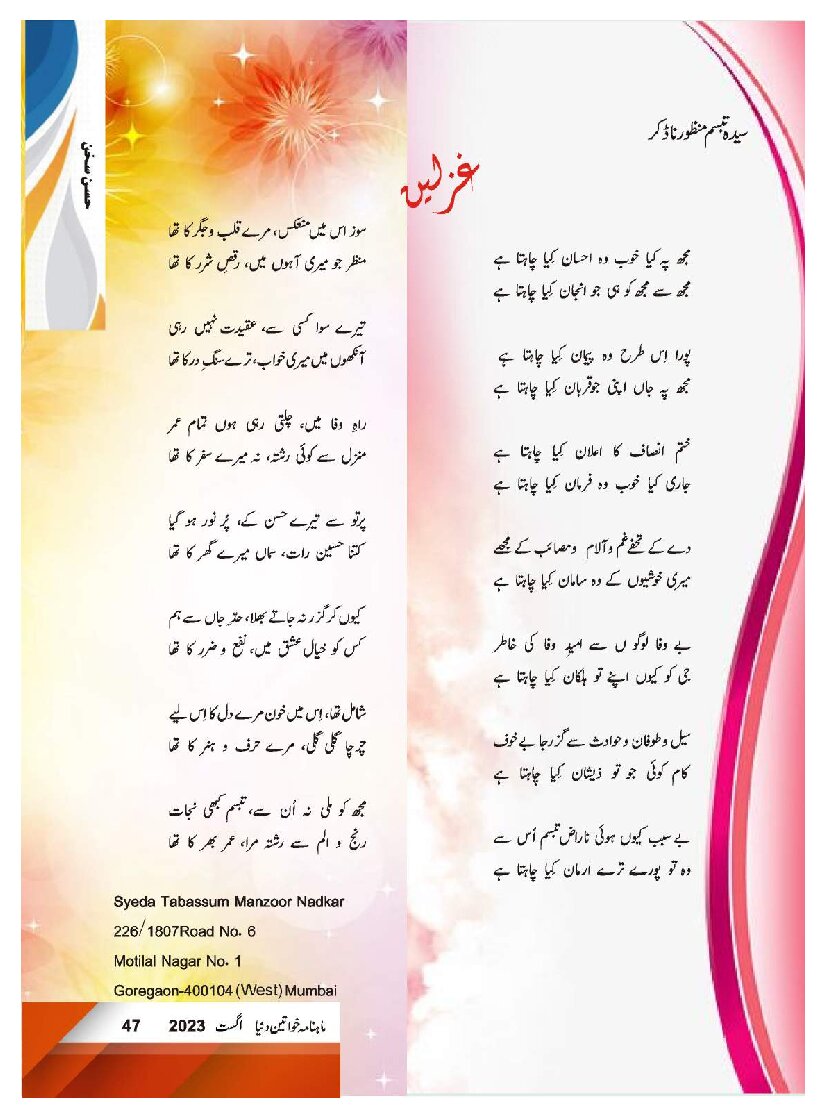 سیدہ تبسم منظور ناڈکر
غزلیں
مجھ پہ کیا خوب وہ احسان کِیا چاہتا ہے
مجھ سے مجھ کو ہی جو انجان کِیا چاہتا ہے
پورا اِس طرح وہ پیمان کِیا چاہتا ہے
مجھ پہ جاں اپنی جو قربان کِیا چاہتا ہے
ختم انصاف کا اعلان کِیا چاہتا ہے
جاری کیا خوب وہ فرمان کِیا چاہتا ہے
دے کے تحفے غم و آلام و مصائب کے مجھے
میری خوشیوں کے وہ سامان کِیا چاہتا ہے
بے وفا لوگو ں سے امیدِ وفا کی خاطر
جی کو کیوں اپنے تو ہلکان کِیا چاہتا ہے
سیل و طوفان و حوادث سے گزر جا بے خوف
کام کوئی جو تو ذیشان کِیا چاہتا ہے
بے سبب کیوں ہوئی ناراض تبسم اُس سے
وہ تو پورے ترے ارمان کِیا چاہتا ہے
حسن سخن
سوز اس میں منعکس، مرے قلب و جگر کا تھا
منظر جو میری آہوں میں، رقصِ شرر کا تھا
تیرے سوا کسی سے، عقیدت نہیں رہی
آنکھوں میں میری خواب، ترے سنگِ در کا تھا
راہِ وفا میں، چلتی رہی ہوں تمام عمر
منزل سے کوئی رشتہ، نہ میرے سفر کا تھا
پرتو سے تیرے حسن کے، پُر نور ہو گیا
کتنا حسین رات، سماں میرے گھر کا تھا
کیوں کر گزر نہ جاتے بھلا، حدِ جاں سے ہم
کس کو خیال عشق میں، نفع و ضرر کا تھا
شامل تھا، اِس میں خون مرے دل کا اِس لیے
چرچا گلی گلی، مرے حرف و ہنر کا تھا
مجھ کو ملی نہ اُن سے، تبسم کبھی نجات
رنج و الم سے رشتہ مرا، عمر بھر کا تھا
Syeda Tabassum Manzoor Nadkar
226/1807Road No. 6
Motilal Nagar No. 1
Goregaon-400104 (West) Mumbai
ماہنامہ خواتین دنیا اگست 2023 47